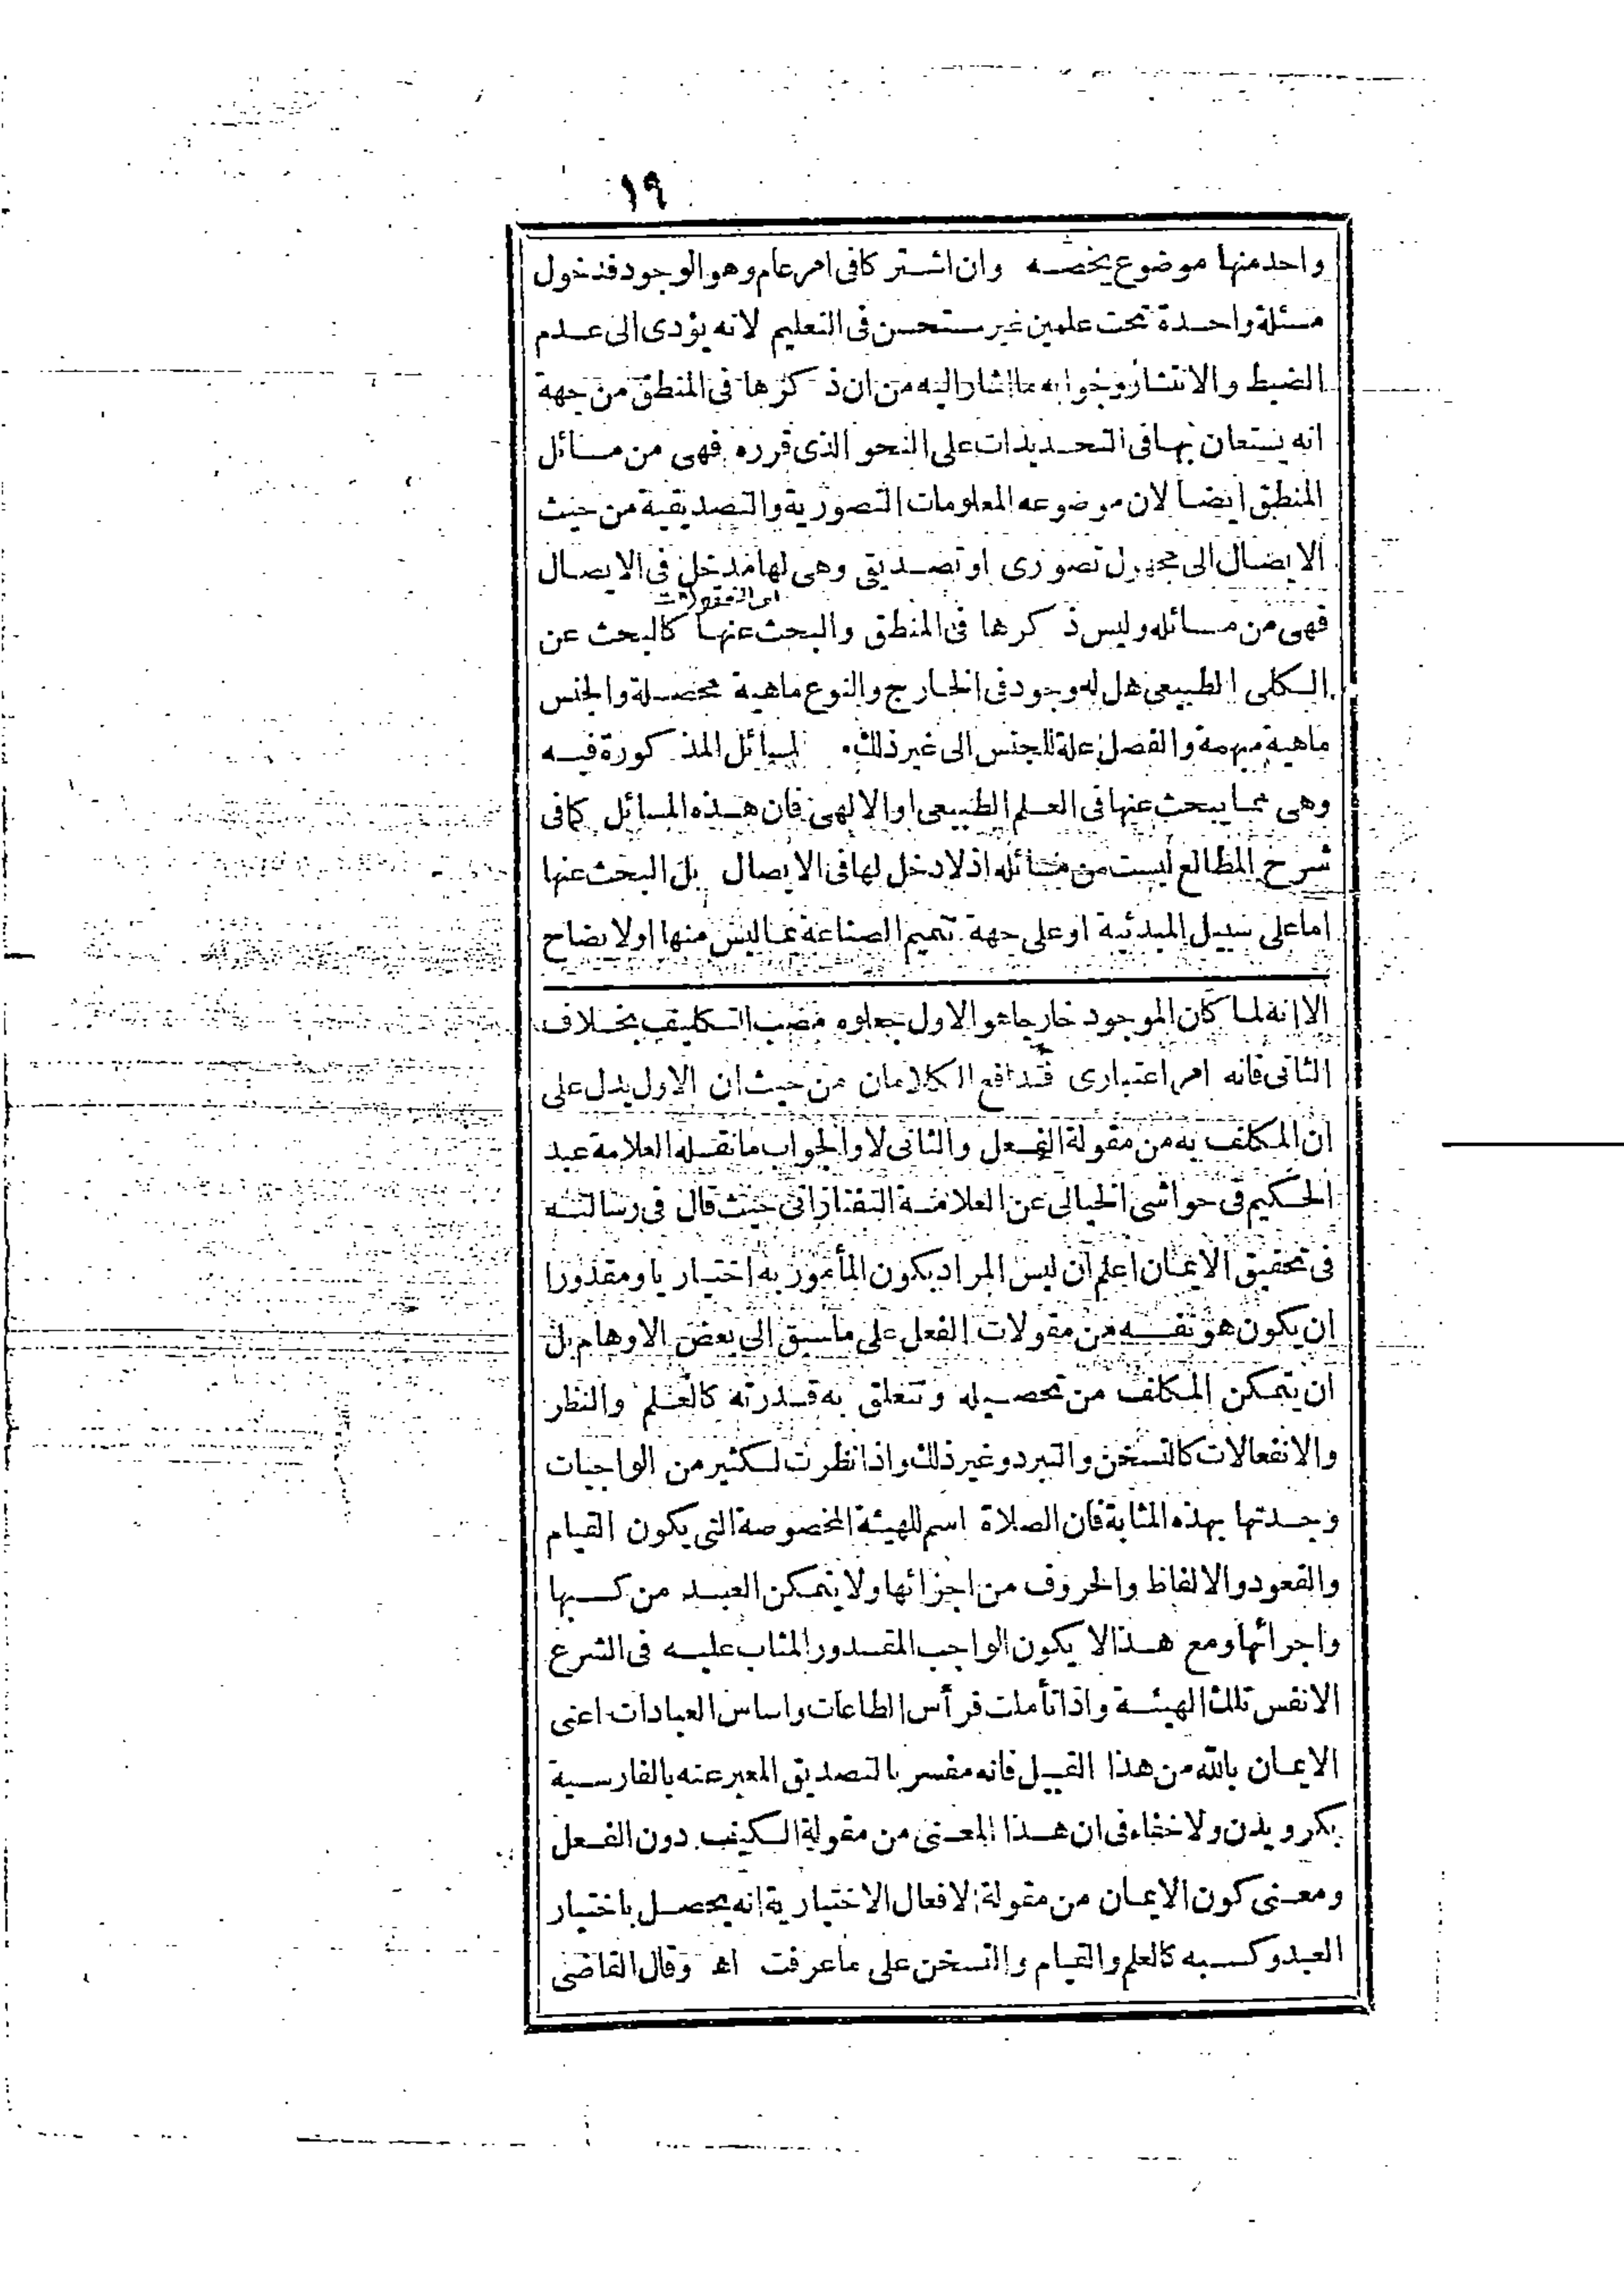 ١٩
واحد منها موضوع يخصه وان اشتركا فى امر عام وهو الوجود فدخول
مسئلة واحدة تحت علمين غير مستحسن فى التعليم لانه يؤدى الى عدم
الضبط والانتشار وجوابه ما اشار اليه من ان ذكرها فى المنطق من جهة
انه يستعان بها فى التحديدات على النحو الذى قرره فهى من مسائل
المنطق ايضا لان موضوعه المعلومات التصورية والتصديقية من حيث
الايصال الى مجهول تصورى او تصديقى وهى لها مدخل فى الايصال
فهى من مسائله وليس ذكرها فى المنطق والبحث عنها كالبحث عن
الكلى الطبيعى هل له وجود فى الخارج والنوع ماهية محصلة والجنس
ماهية مبهمة والفصل علة للجنس الى غير ذلك المسائل المذكورة فيه
وهى مما يبحث عنها فى العلم الطبيعى او الالهى فان هذه المسائل كما فى
شرح المطالع ليست من مسائله اذ لا دخل لها فى الايصال بل البحث عنها
اما على سبيل المبدئية او على جهة تتميم الصناعة بما ليس منها او لايضاح
الا انه لما كان الموجود خارجا هو الاول جعلوه مصب التكليف بخلاف
الثانى فانه امر اعتبارى فتدافع الكلامان من حيث ان الاول يدل على
ان المكلف به من مقولة الفعل والثانى لا والجواب ما نقله العلامة عبد
الحكيم فى حواشى الخيالى عن العلامة التفتازانى حيث قال فى رسالته
فى تحقيق الايمان اعلم ان ليس المراد بكون المأمور به اختياريا ومقدورا
ان يكون هو نفسه من مقولات الفعل على ما سبق الى بعض الاوهام بل
ان يتمكن المكلف من تحصيله وتتعلق به قدرته كالعلم والنظر
والانفعالات كالتسخن والتبرد وغير ذلك واذا نظرت لكثير من الواجبات
وجدتها بهذه المثابة فان الصلاة اسم للهيئة المخصوصة التى يكون القيام
والقعود والالفاظ والحروف من اجزائها ولا يتمكن العبد من كسبها
واجرائها ومع هذا لا يكون الواجب المقدور المثاب عليه فى الشرع
الا نفس تلك الهيئة واذا تأملت فرأس الطاعات واساس العبادات اعنى
الايمان بالله من هذا القبيل فانه مفسر بالتصديق المعبر عنه بالفارسية
بكرويدن ولا خفاء فى ان هذا المعنى من مقولة الكيف دون الفعل
ومعنى كون الايمان من مقولة الافعال الاختيارية انه يحصل باختيار
العبد وكسبه كالعلم والقيام والتسخن على ما عرفت اه وقال القاضى